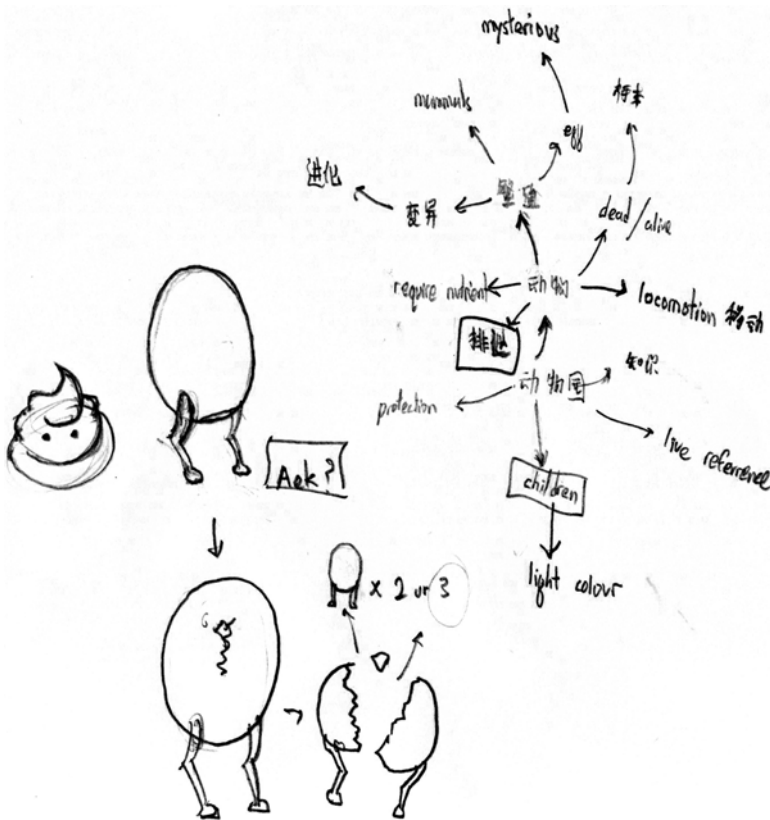 mysterious
mammals
egg
标本
进化
变异
dead/alive
require nutrient
动物
locomotion 移动
排泄
动物园
知识
protection
live reference
Ask?
children
x 2 or 3
light colour